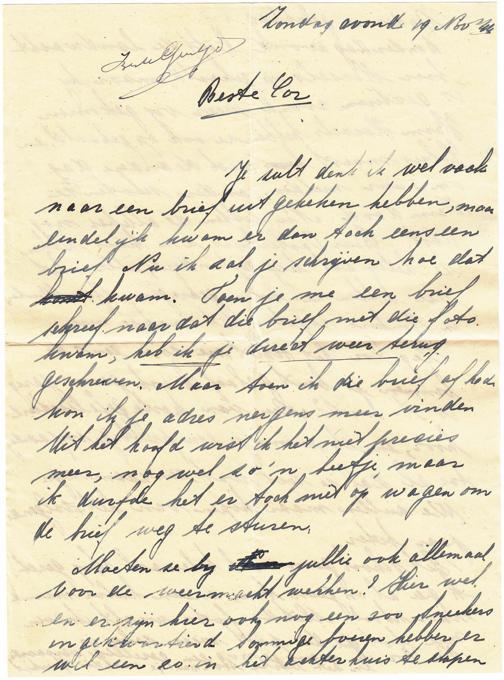 Zondag avond 19 Nov 44
Beste Cor
Je zult denk ik wel vaak
naar een brief uit gekeken hebben, maar
eindelijk kwam er dan toch eens een
brief. Nu ik zal je schrijven hoe dat
kwam. Toen je me een brief
schreef naar dat die brief met die foto
kwam, heb ik je direct weer terug
geschreven. Maar toen ik die brief af had
kon ik je adres nergens meer vinden
Uit het hoofd wist ik het niet presies
meer, nog wel zo'n beetje, maar
ik durfde het er toch niet op wagen om
de brief weg te sturen.
Moeten se by jullie ook allemaal
voor de weermacht wekken? Hier wel
en er zijn hier ook nog een 200
ingekwartierd sommige boeren hebben er
wel een 20 in het achterhuis te slapen